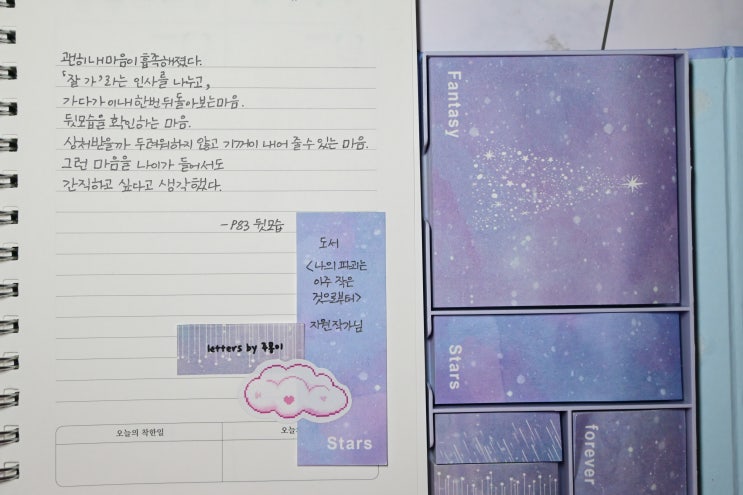 괜히 내 마음이 흡족해졌다.
'잘 가'라는 인사를 나누고,
가다가 이내 한번 뒤돌아보는 마음.
뒷모습을 확인하는 마음.
상처받을까 두려워하지 않고 기꺼이 내어 줄 수 있는 마음.
그런 마음을 나이가 들어서도
간직하고 싶다고 생각했다.
-P83 뒷모습
도서
<나의 파괴는
아주 작은
것으로부터>
지원 작가님
letters by
Stars
오늘의 착한일
오늘
Fantasy
Stars
forever